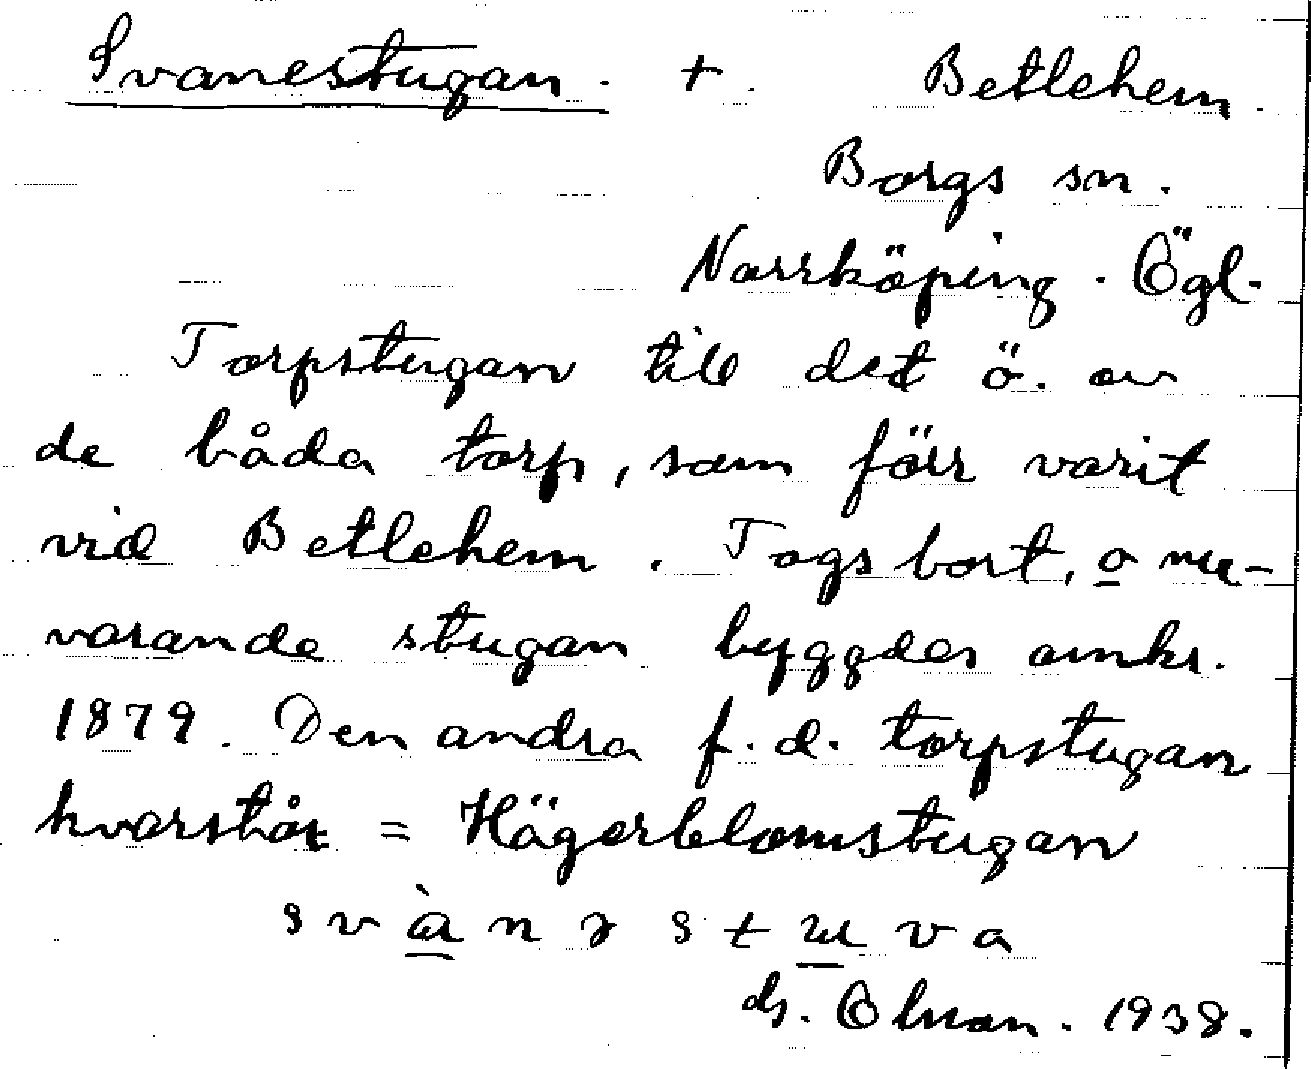 Svanestugan. + Betlehem.
Borgs sn.
Norrköping. Ögl.
Torpstugan till det ö. av
de båda torp, som förr varit
vid Betlehem. Togs bort, o nu-
varande stugan byggdes omkr.
1879. Den andra f.d. torpstugan
kvarstår = Hägerblomstugan
Olson. 1938.